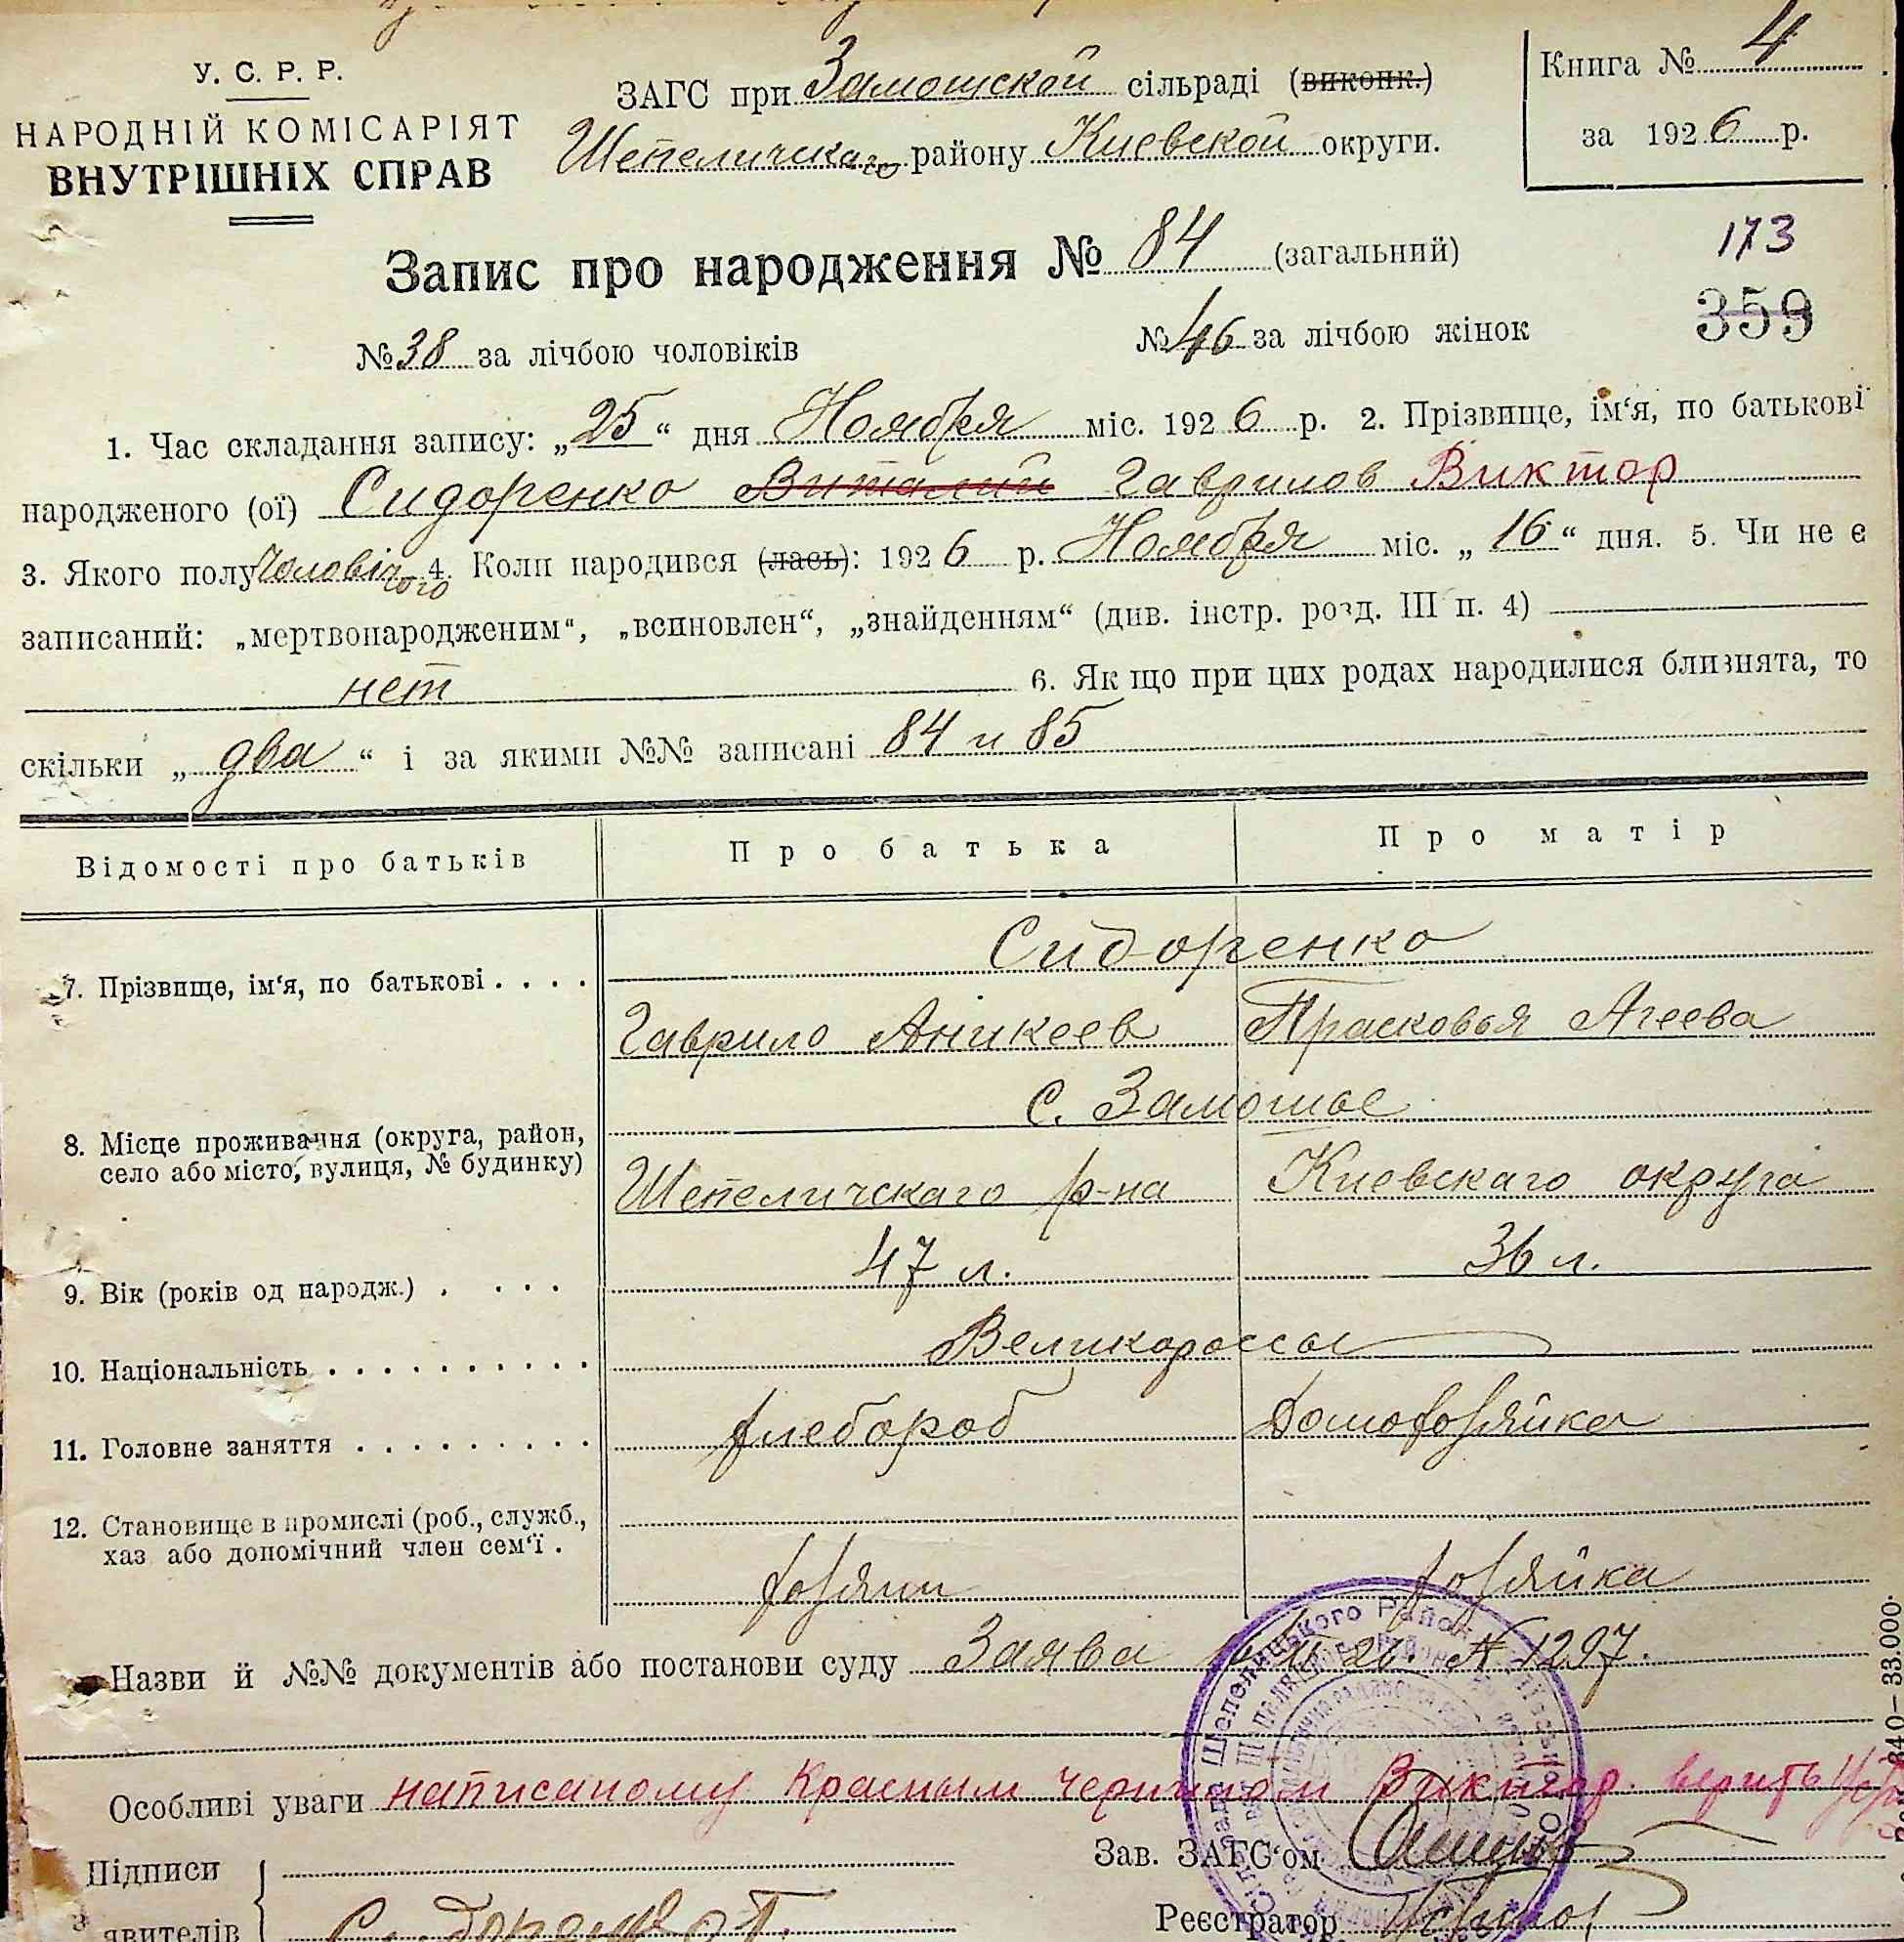 У. С. Р. Р.
НАРОДНІЙ КОМІСАРІЯТ
ВНУТРІШНІХ СПРАВ
ЗАГС при Замошской сільраді (виконк.)
Шепеличскаго району Киевской округи.
Книга № 4
за 1926 р.
Запис про народження № 84 (загальний)
173
359
№ 38 за лічбою чоловіків № 46 за лічбою жінок
1. Час складання запису: „25“ дня Ноября міс. 1926 р. 2. Прізвище, ім‘я, по батькові
народженого (ої) Сидоренко Виталий Гаврилов Виктор
3. Якого полу Чоловічого 4. Коли народився (лась): 1926 р. Ноября міс. „16“ дня. 5. Чи не є
записаний: „мертвонародженим“, „всиновлен“, „знайденням“ (див. інстр. розд. III п. 4)
нет 6. Як що при цих родах народилися близнята, то
скільки „два“ і за якими №№ записані 84 и 85
Відомості про батьків Про батька Про матір
Сидоренко
7. Прізвище, ім‘я, по батькові . . . .
Гаврило Аникеев Прасковья Агеева
с. Замошье
8. Місце проживання (округа, район,
село або місто, вулиця, № будинку)
Шепеличскаго р-на Киевскаго округа
9. Вік (років од народж.) . . . . 47 л. 36 л.
10. Національність . . . . . . . . . . Великороссы
11. Головне заняття . . . . . . . . . хлебороб Домохозяйка
12. Становище в промислі (роб., служб.,
хаз або допомічний член сем‘ї .
хозяин хозяйка
Назви й №№ документів або постанови суду Заява № 1297.
Особливі уваги написаному Красным чернилом Виктор. верить
Підписи
явителів
Зав. ЗАГС‘ом
Реєстратор
Шепелицького Району
840—33.000.